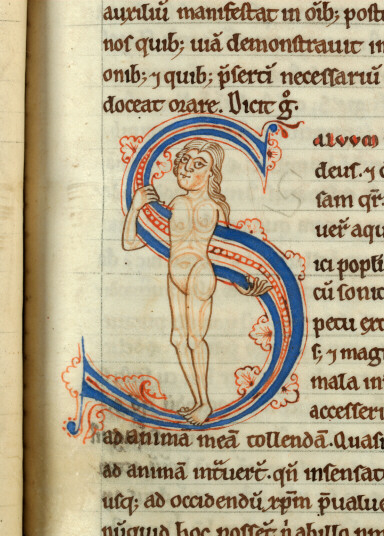 auxiliū manifestat in oīb; post
nos quib; uiā demonstrauit i
onib; ⁊ quib; p̄serti necessariū
doceat orare. Dicit g̊.
S aluum
deus. ⁊
sam qr̄
uer̄ aqu
ici popli
cū sonit
peccī
s; ⁊ mag
mala in
accesser
ad anima meā tollendā. Quasi
ad animā int̄uer̄t. qn̄ insensat
usq; ad occidendū xp̄m p̄ualue
nūquid hoc posset n̄ ab illo